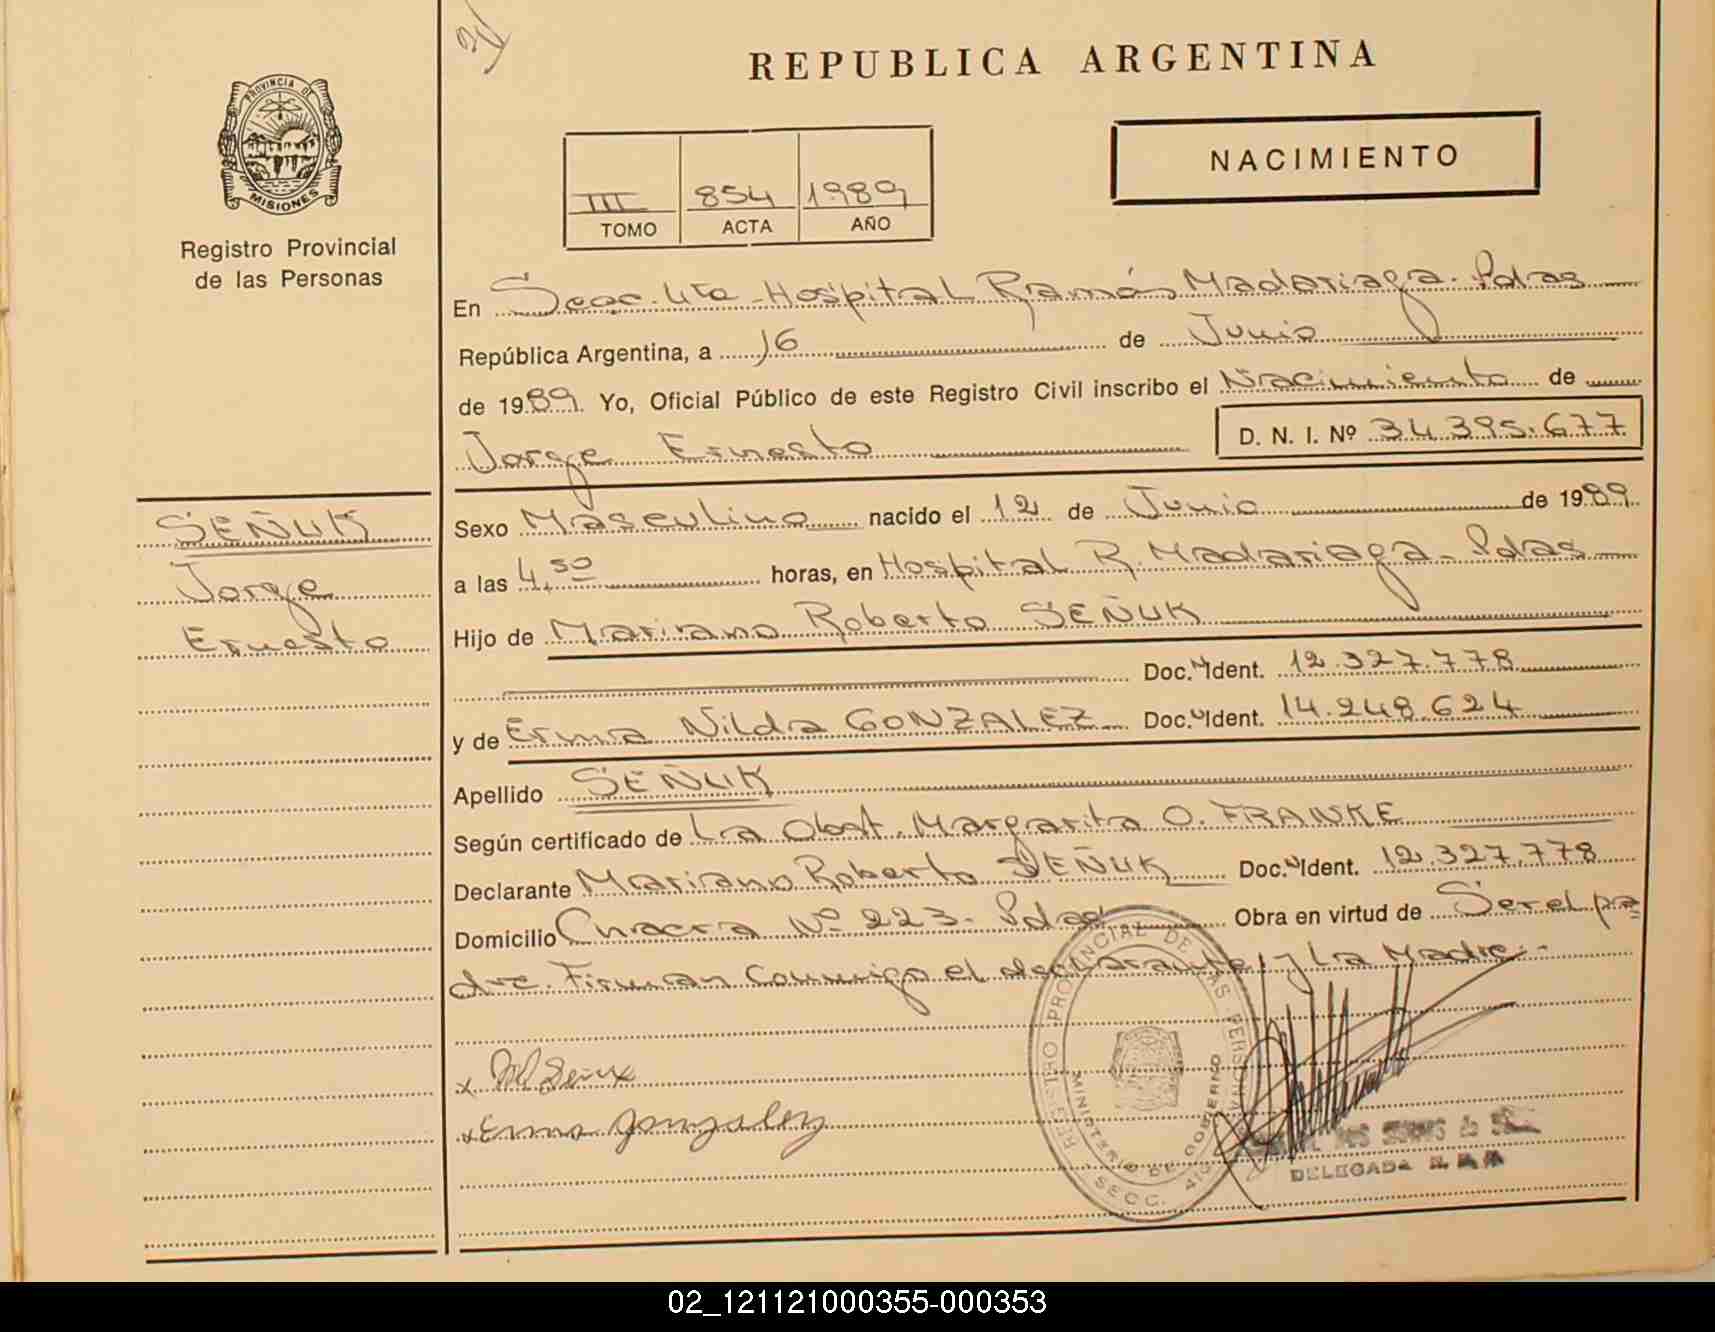 PROVINCIA DE
MISIONES
Registro Provincial
de las Personas
SEÑUK
Jorge
Ernesto
REPUBLICA ARGENTINA
NACIMIENTO
III 854 1989
TOMO ACTA AÑO
En Secc. 4ta - Hospital Ramón Madariaga - Pdas
República Argentina, a 16 de Junio
de 1989. Yo, Oficial Público de este Registro Civil inscribo el Nacimiento de
Jorge Ernesto D. N. I. Nº 34.395.677
Sexo Masculino nacido el 12 de Junio de 1989
a las 4,50 horas, en Hospital R. Madariaga - Pdas
Hijo de Mariano Roberto SEÑUK
Doc. Ident. 12.327.778
y de Erma Nilda GONZALEZ Doc. Ident. 14.248.624
Apellido SEÑUK
Según certificado de La Obst. Margarita O. FRANKE
Declarante Mariano Roberto SEÑUK Doc. Ident. 12.327.778
Domicilio Chacra Nº 223 - Pdas Obra en virtud de Ser el pa
dre. Firman conmigo el declarante y La Madre.-
x M Señuk
x Erma Gonzalez
REGISTRO PROVINCIAL DE LAS PERSONAS
MINISTERIO DE GOBIERNO
SECC. 4ta
DELEGADA
02_121121000355-000353